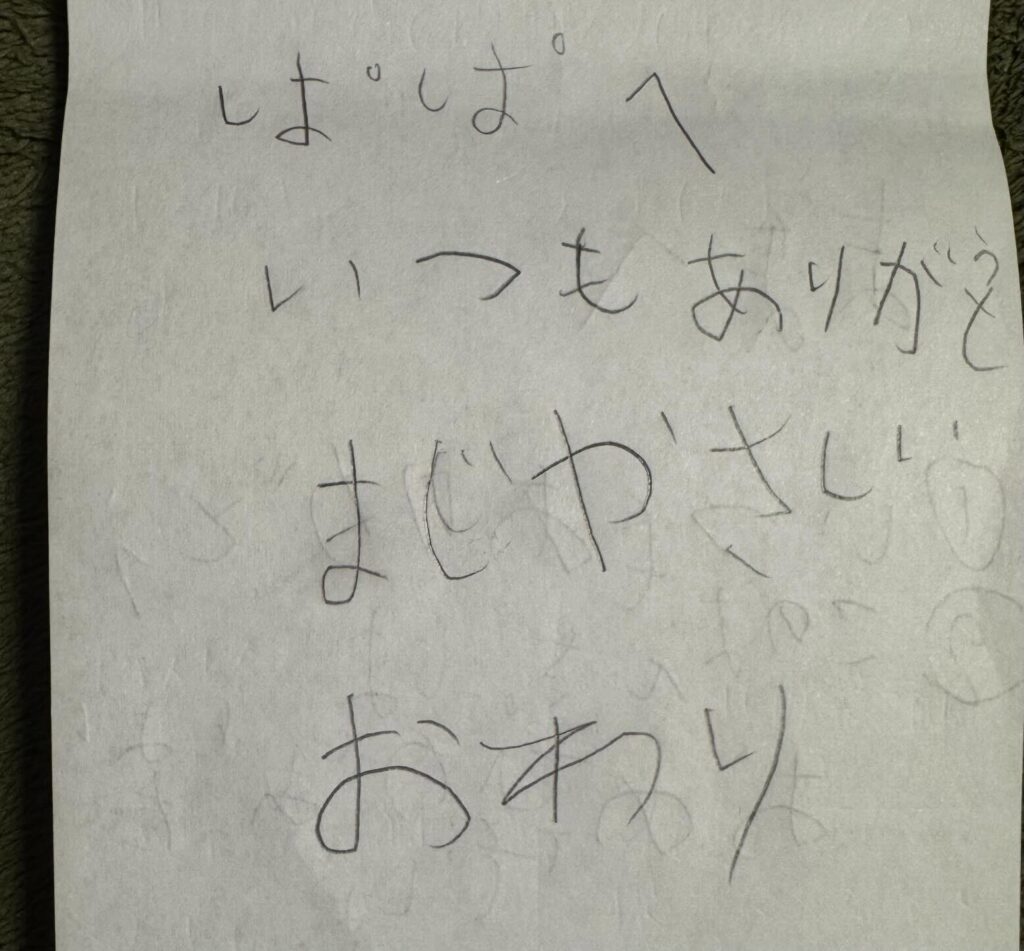 ぱぱへ
いつもありがとう
まじやさしい
おわり